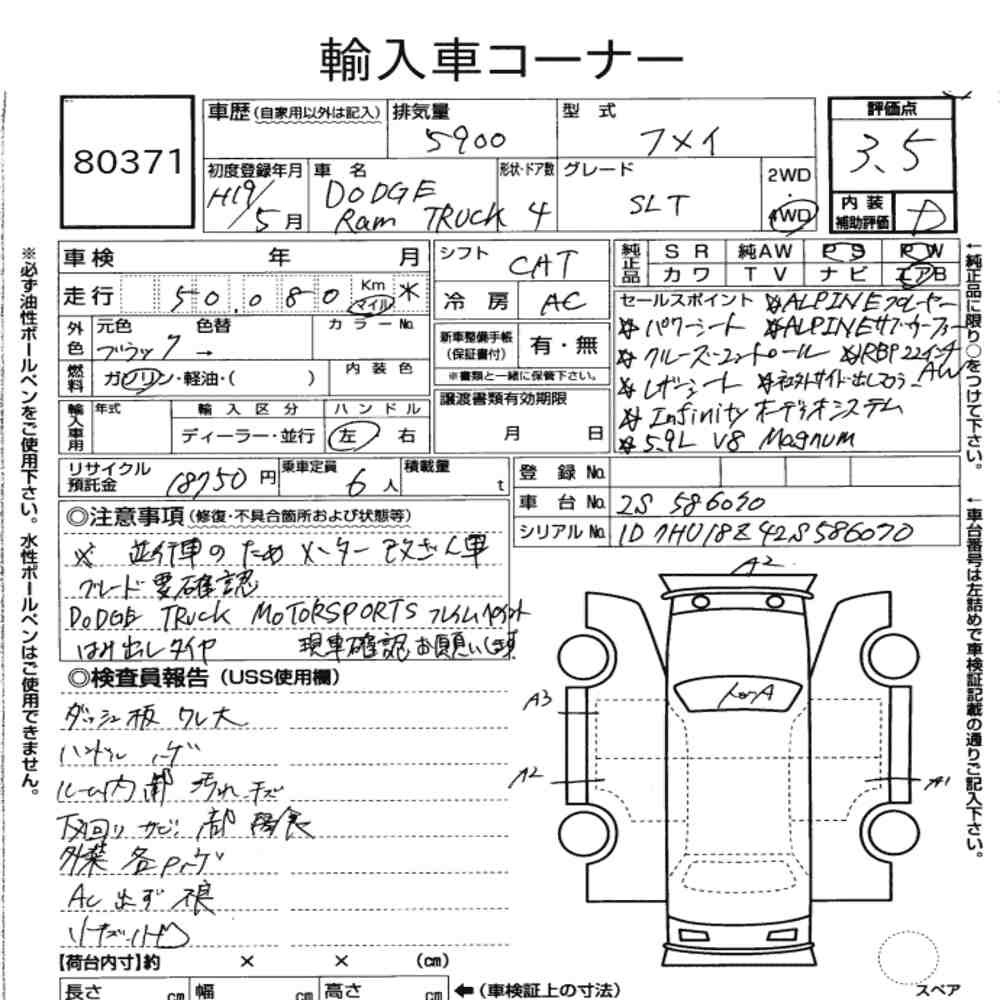 輸入車コーナー
80371
車歴 (自家用以外は記入) 排気量 型式 評価点
5900 フメイ 3.5
初度登録年月 車名 形状・ドア数 グレード 2WD
・
H19/5月 DODGE Ram TRUCK 4 SLT 4WD
内装補助評価 D
車検 年 月
走行 50,080 Km マイル ※
シフト CAT
冷房 AC
純正品 SR 純AW PS PW
カワ TV ナビ エアB
外色 元色 色替 カラーNo.
ブラック →
新車整備手帳 (保証書付) 有・無
※書類と一緒に保管下さい。
燃料 ガソリン・軽油・( ) 内装色
譲渡書類有効期限
月 日
輸入車用 年式 輸入区分 ハンドル
ディーラー・並行 左 右
セールスポイント ※ALPINEプレーヤー
※パワーシート ※ALPINEサブウーファー
※クルーズコントロール ※RBP22インチAW
※レザーシート ※社外サイド出しマフラー
※Infinityオーディオシステム
※5.9L V8 Magnum
リサイクル預託金 18750円 乗車定員 6人 積載量 t
登録No.
車台No. 2S 586070
シリアルNo. 1D7HU18Z42S586070
◎注意事項 (修復・不具合箇所および状態等)
※ 並行車のためメーター改ざん車
グレード要確認
DODGE TRUCK MOTORSPORTS フレイムペイント
はみ出しタイヤ 現車確認お願い致
◎検査員報告 (USS使用欄)
ダッシュ板ワレ大
ハンドルハゲ
ルーム内部 汚れ キズ
下回りサビ 部腐食
外装各Pハゲ
AC出ず不良
A2
トップA
A3
A2
A1
【荷台内寸】約 × × (cm)
長さ cm 幅 cm 高さ cm ←(車検証上の寸法)
スペア
※必ず油性ボールペンをご使用下さい。水性ボールペンはご使用できません。
←純正品に限り○をつけて下さい。
←車台番号は左詰めで車検証記載の通りご記入下さい。